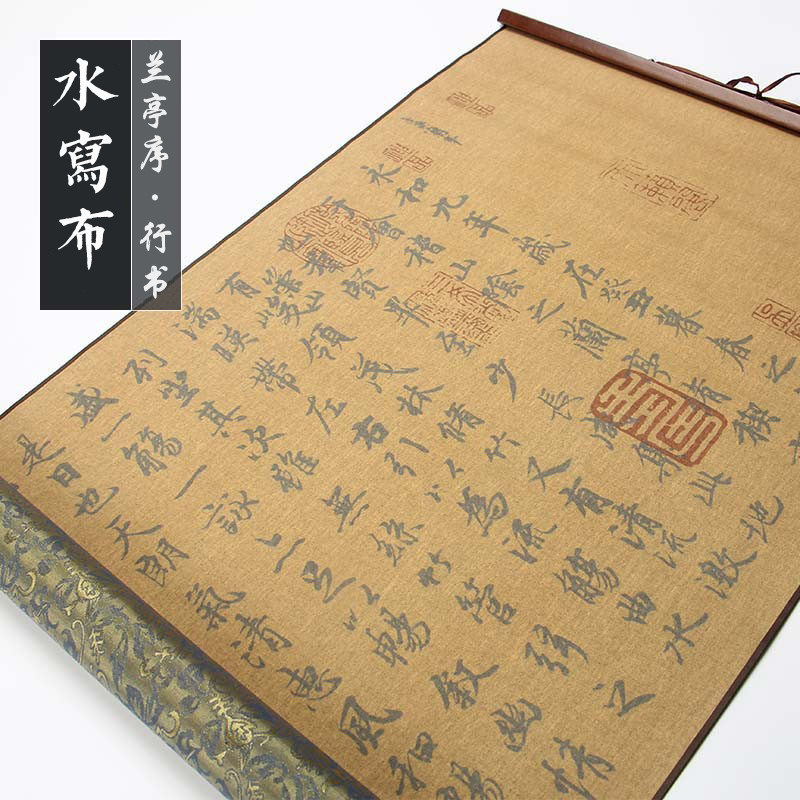 水寫布
兰亭序·行书
永和元年歲在癸丑暮春之
會稽山陰之蘭亭
羣賢畢至少長咸集此地
有崇山峻領茂林脩竹又有清流激
湍映帶左右引以為流觴曲水
列坐其次雖無絲竹管弦之
盛一觴一詠亦足以暢敘幽情
是日也天朗氣清惠風和暢